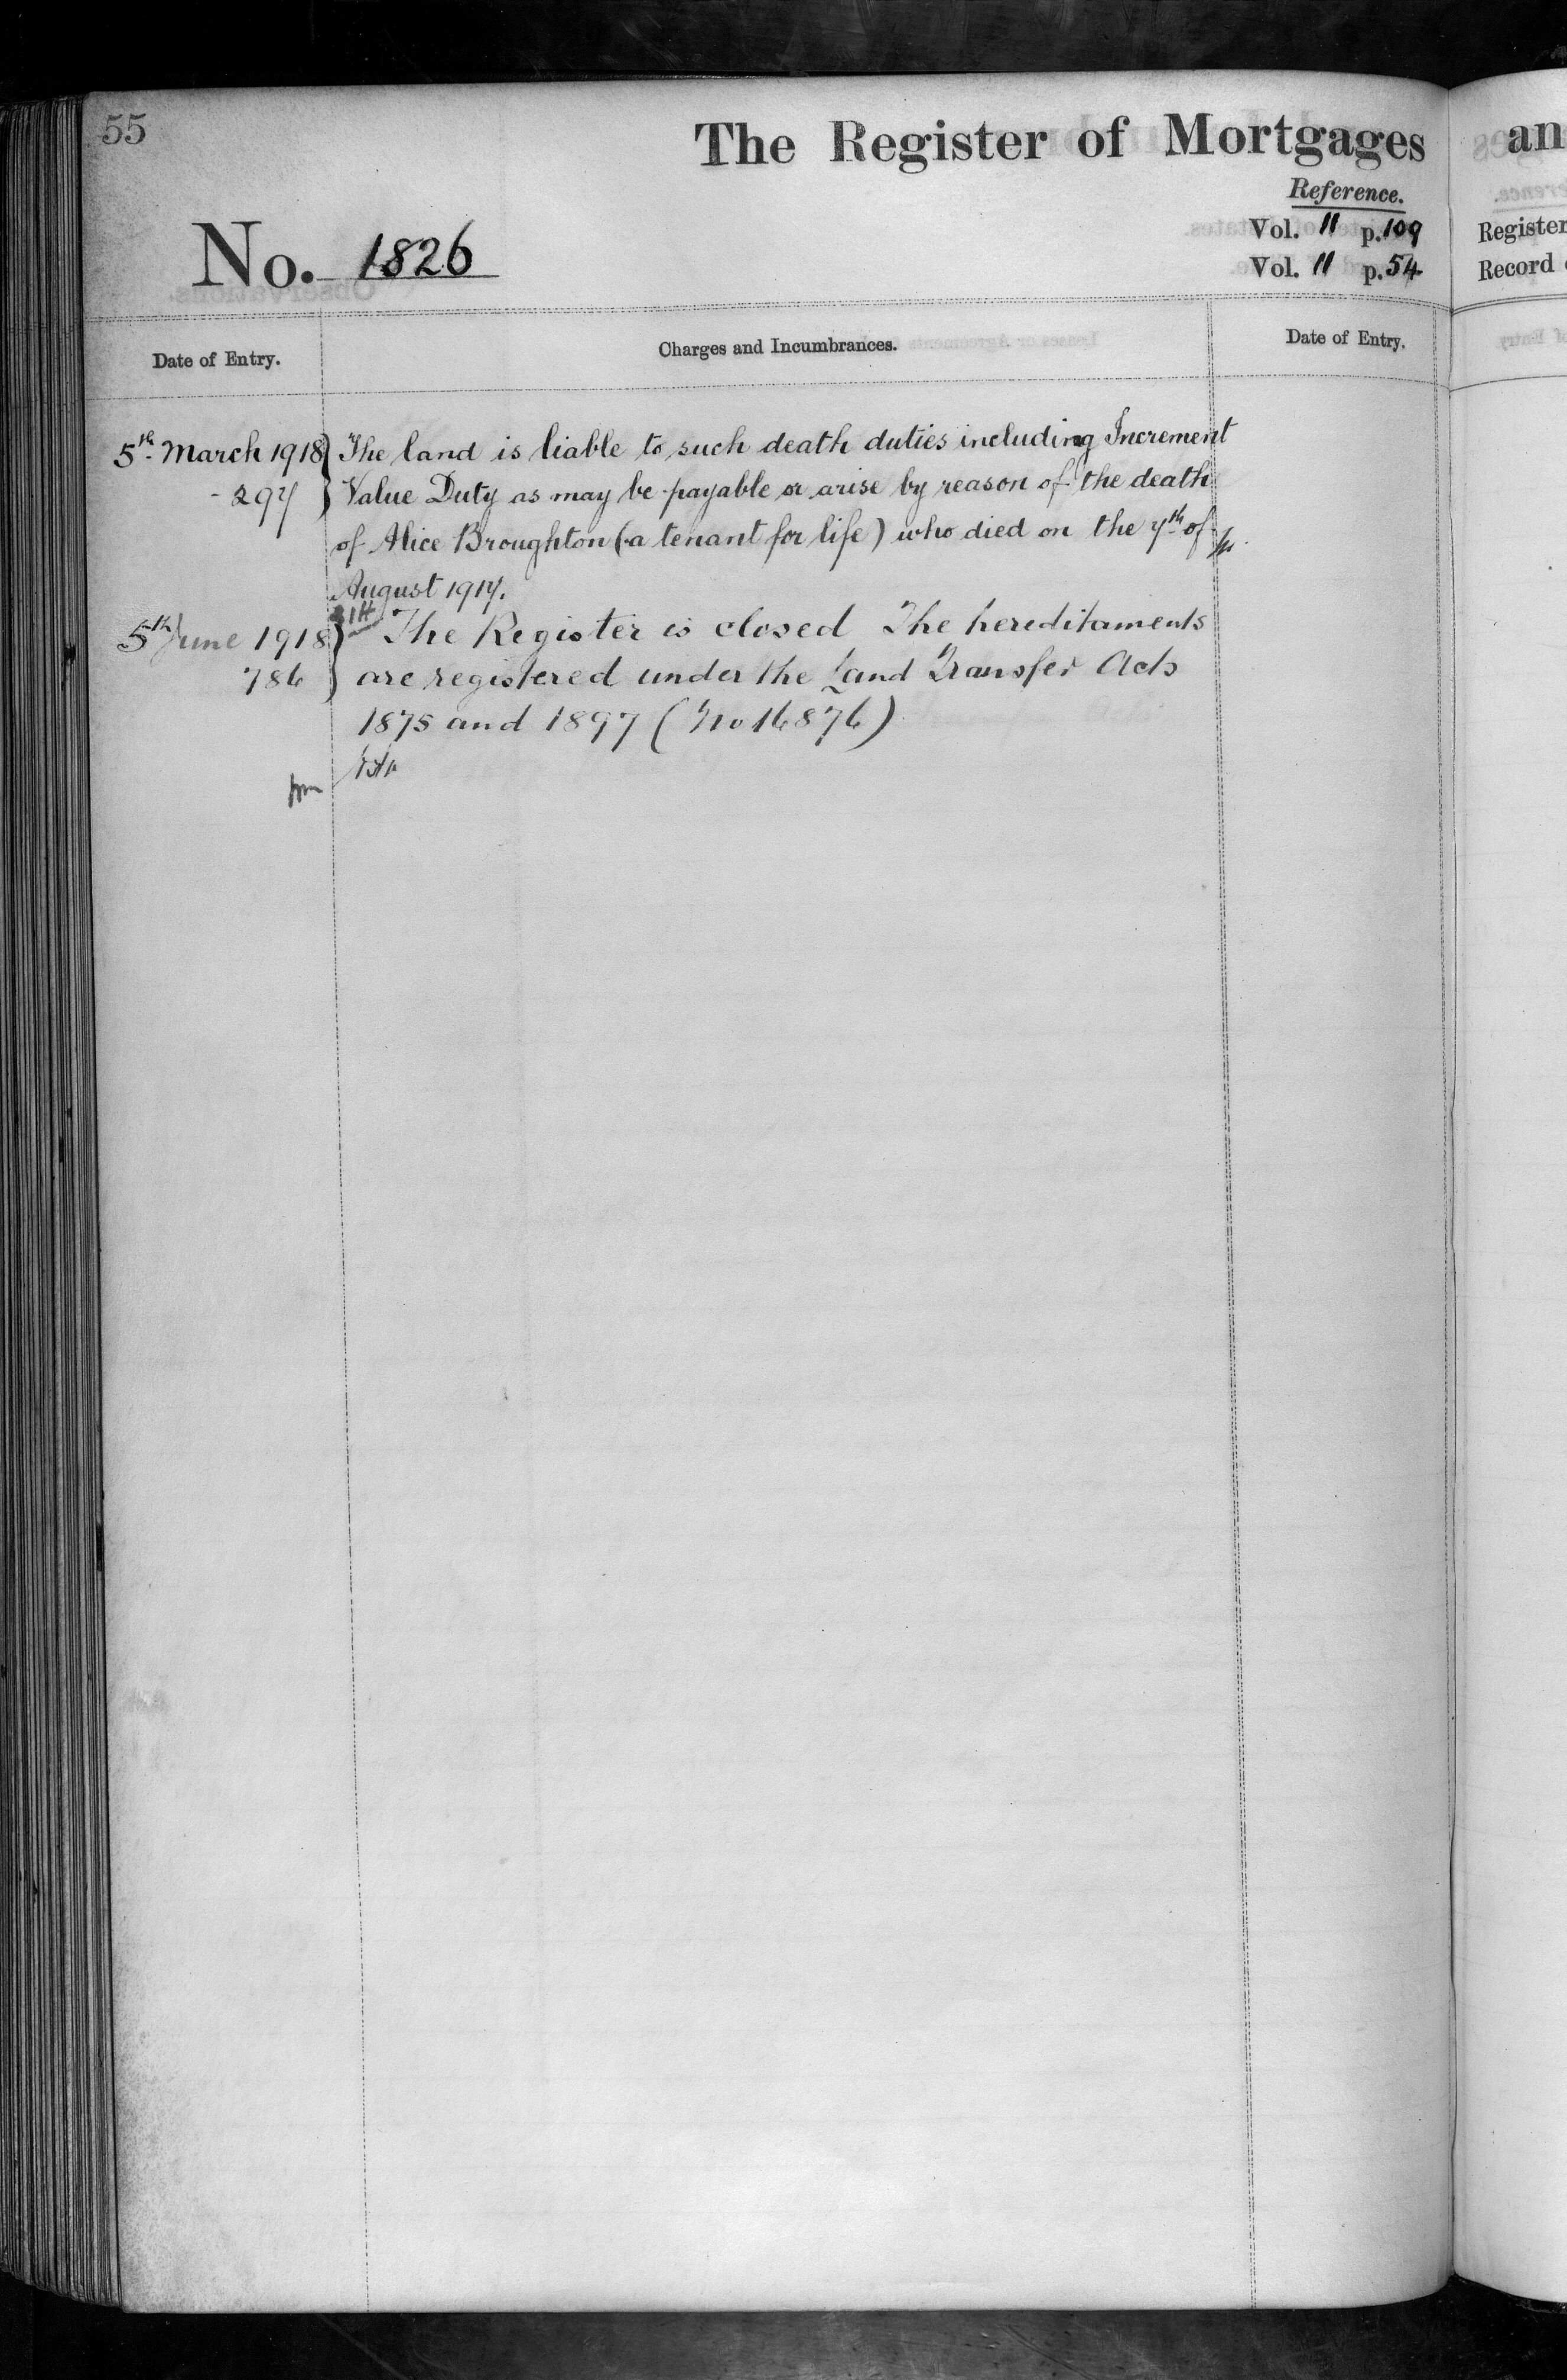 55
The Register of Mortgages
Reference.
Vol. 11 p. 109
Vol. 11 p. 54
No. 1826
Date of Entry.
Charges and Incumbrances.
Date of Entry.
5th March 1918
297
The land is liable to such death duties including Increment
Value Duty as may be payable or arise by reason of the death
of Alice Broughton (a tenant for life) who died on the 7th of
August 1917.
5th June 1918
786
The Register is closed The hereditaments
are registered under the Land Transfer Acts
1875 and 1897 (No 16876)
an
Register
Record